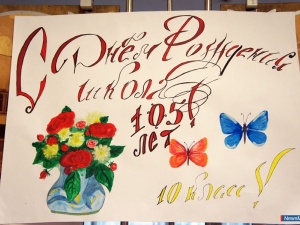 С Днём Рождения
школа!
105
лет
10 класс!